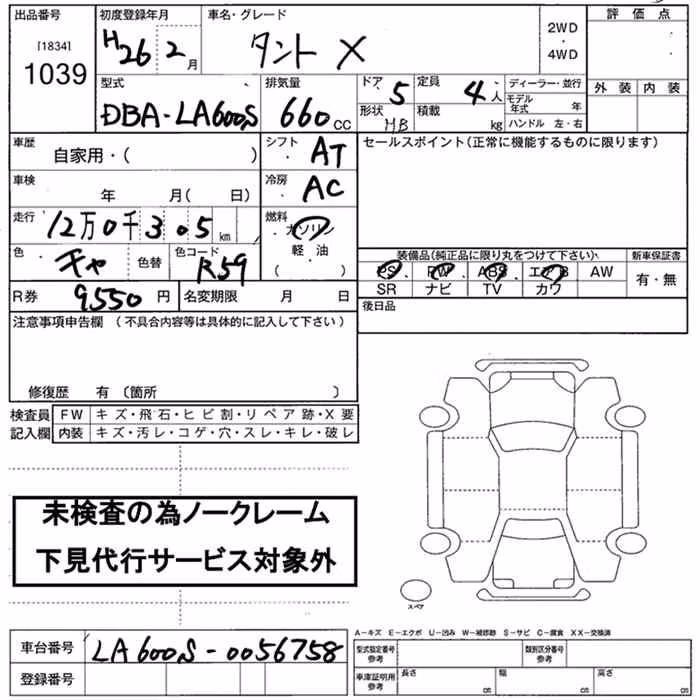 出品番号
[1834]
1039
初度登録年月
H26 2 月
車名・グレード
タント X
2WD
・
4WD
評価点
外装 内装
型式
DBA-LA600S
排気量
660 CC
ドア 5
形状 HB
定員 4 人
積載 kg
ディーラー・並行
モデル年式 年
ハンドル 左・右
車歴
自家用・( )
シフト AT
車検
年 月( 日)
冷房 AC
走行
12万0千305 km
燃料
ガソリン
軽油
( )
色
チャ
色替
色コード
R59
R券 9550 円
名変期限 月 日
セールスポイント(正常に機能するものに限ります)
装備品(純正品に限り丸をつけて下さい)
PS PW ABS エアB AW
SR ナビ TV カワ
新車保証書
有・無
後日品
注意事項申告欄 (不具合内容等は具体的に記入して下さい)
修復歴 有 〔箇所 〕
検査員
記入欄
FW キズ・飛石・ヒビ割・リペア跡・X要
内装 キズ・汚レ・コゲ・穴・スレ・キレ・破レ
未検査の為ノークレーム
下見代行サービス対象外
スペア
A-キズ E-エクボ U-凹み W-補修跡 S-サビ C-腐食 XX-交換済
車台番号 LA600S-0056758
登録番号
型式指定番号
参考
類別区分番号
参考
車庫証明用
参考
長さ cm
幅 cm
高さ cm